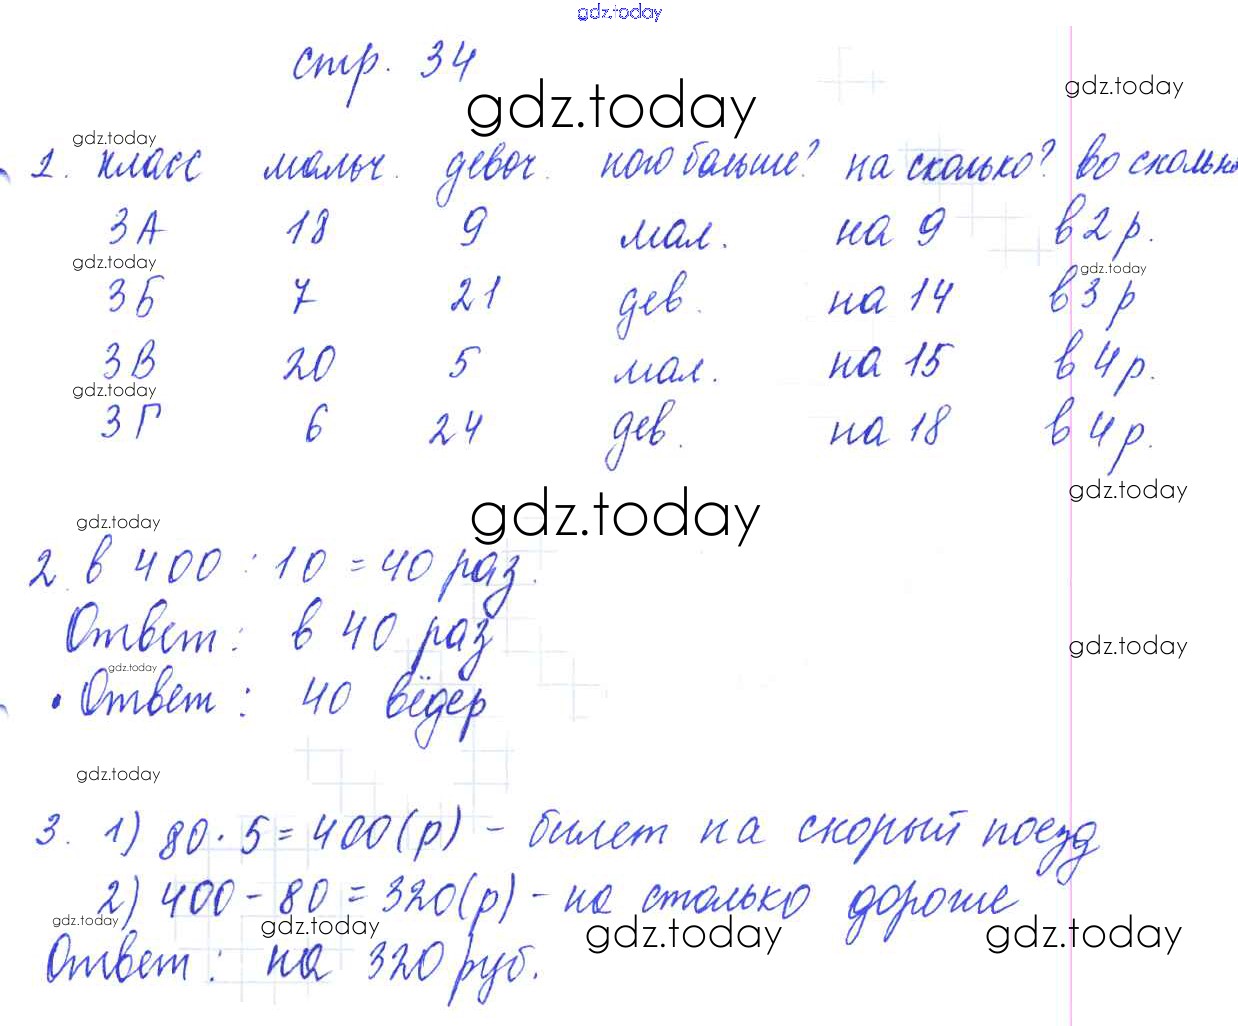 gdz.today
стр. 34
gdz.today
gdz.today
gdz.today
1. класс мальч. девоч. кого больше? на сколько? во сколько
3А 18 9 мал. на 9 в 2 р.
gdz.today
gdz.today
3Б 7 21 дев. на 14 в 3 р
3В 20 5 мал. на 15 в 4 р.
gdz.today
3Г 6 24 дев. на 18 в 4 р.
gdz.today
gdz.today
gdz.today
2. в 400 : 10 = 40 раз.
Ответ: в 40 раз
gdz.today
gdz.today
• Ответ: 40 вёдер
gdz.today
3. 1) 80 · 5 = 400 (р) - билет на скорый поезд
2) 400 - 80 = 320 (р) - на столько дороже
gdz.today
gdz.today
gdz.today
gdz.today
Ответ: на 320 руб.